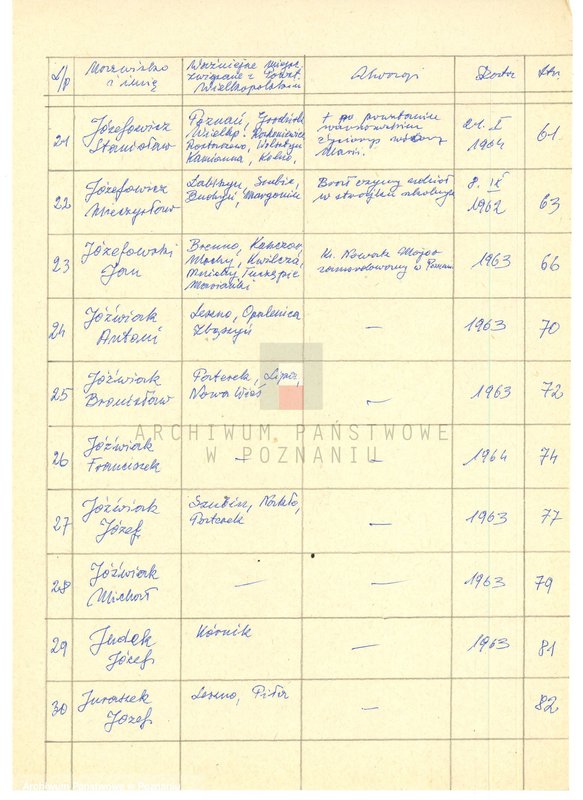 L/p
Nazwisko
i imię
Ważniejsze miejsc.
związane z Powst.
Wielkopolskim
Uwagi
Data
Str
21
Józefowicz
Stanisław
Poznań, Grodzisk
Wielkp. Rakoniewice
Rostarzewo, Wolsztyn
Kamionna, Kolno,
+ po powstaniu
21. I
1964
61
22
Józefowicz
Mieczysław
Łabiszyn, Szubin,
Budzyń, Margonin
Brał czynny udział
w strajku szkolnym
8. IX
1962
63
23
Józefowski
Jan
Brenno,
Kwilcz,
Ks. Nowak Major
zamordowany w Poznan.
1963
66
24
Jóźwiak
Antoni
Leszno, Opalenica
Zbąszyń
—
1963
70
25
Jóźwiak
Bronisław
Porterek, Lipa,
Nowa Wieś
—
1963
72
ARCHIWUM PAŃSTWOWE
W POZNANIU
26
Jóźwiak
Franciszek
—
—
1964
74
27
Jóźwiak
Józef
Szubin, Nakło,
Porterek
—
1963
77
28
Jóźwiak
Michał
—
—
1963
79
29
Judek
Józef
Kórnik
—
1963
81
30
Juraszek
Józef
Leszno, Piła
—
82
Archiwum Państwowe w Poznaniu